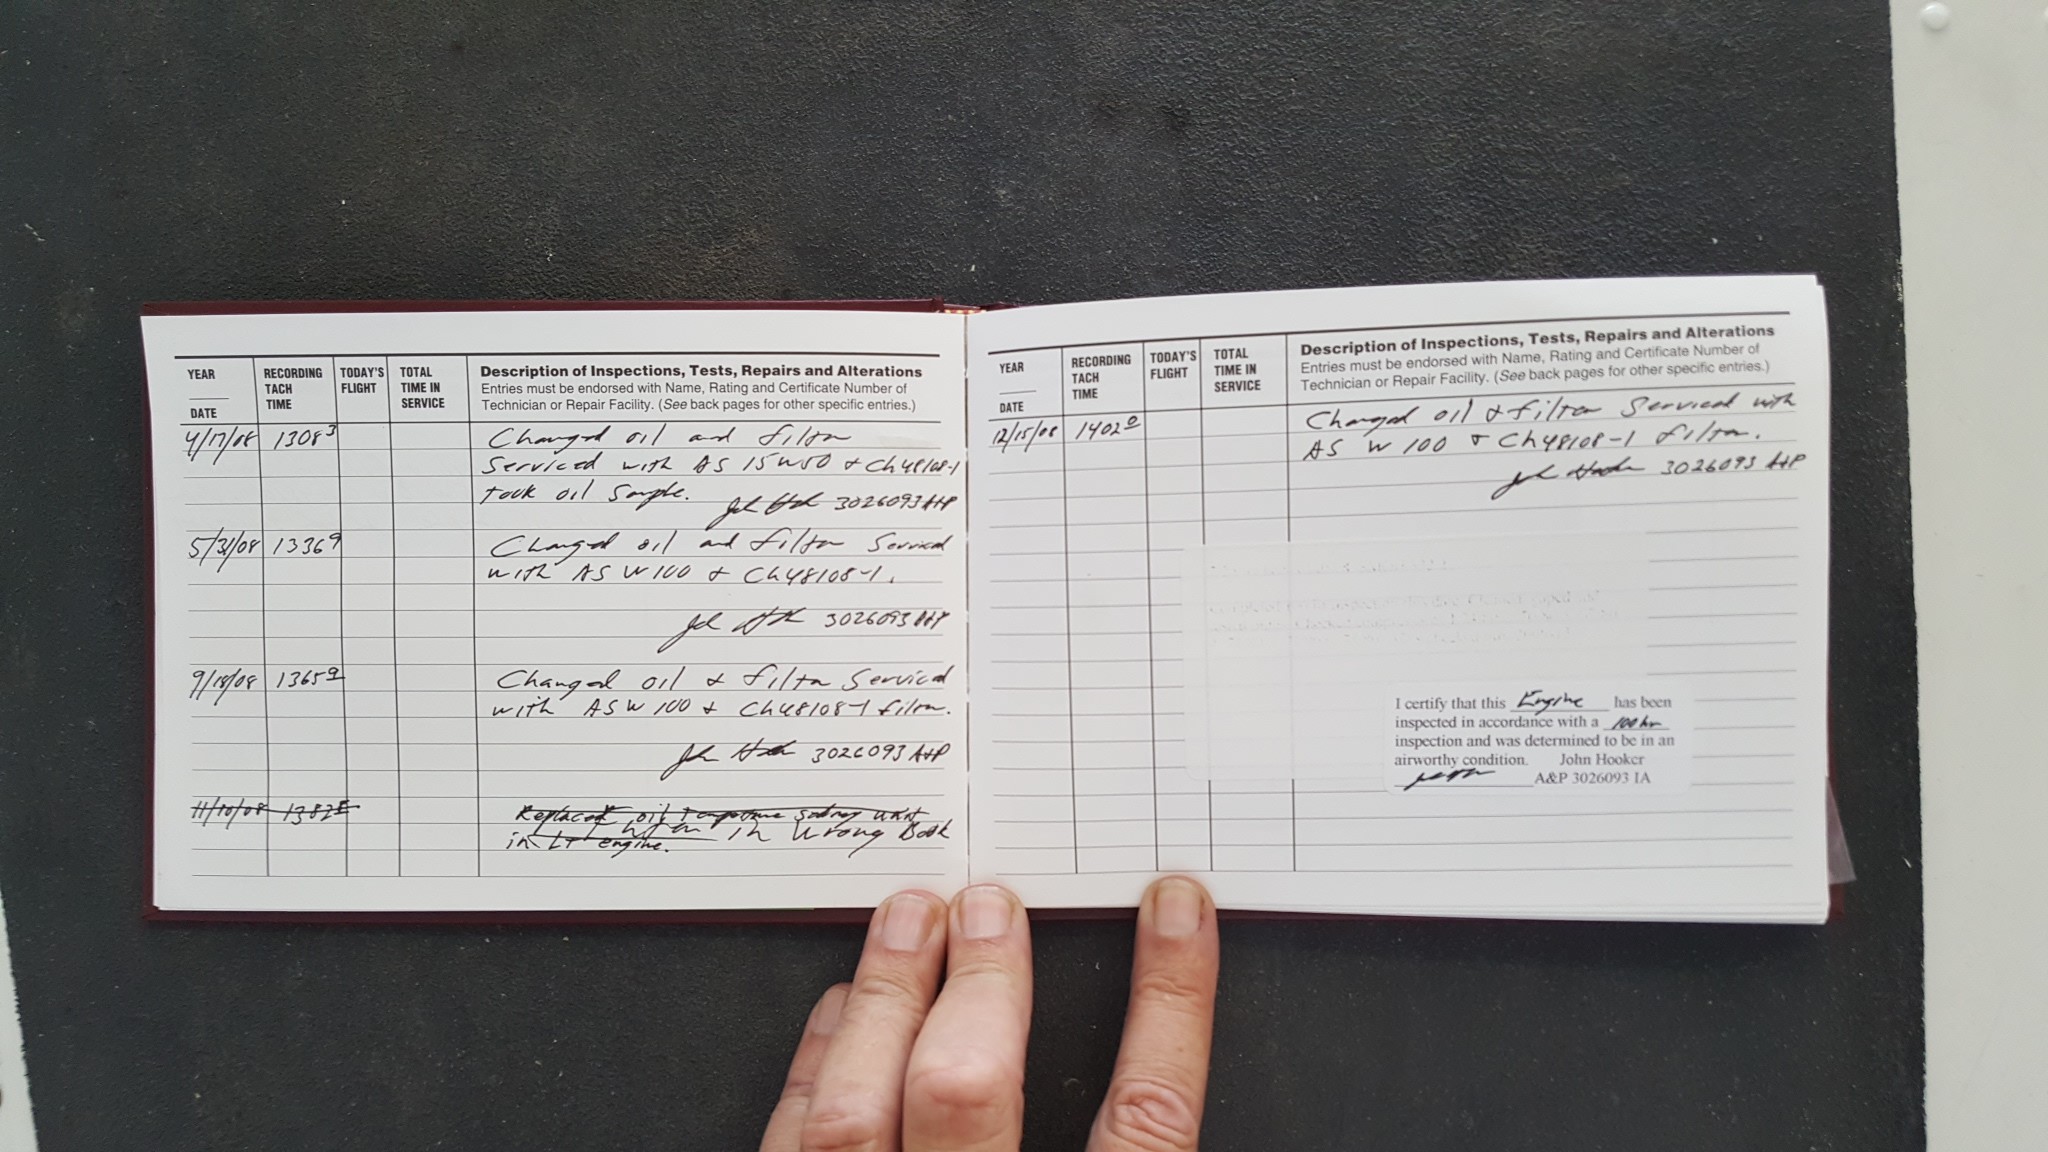 YEAR
DATE
RECORDING
TACH
TIME
TODAY'S
FLIGHT
TOTAL
TIME IN
SERVICE
Description of Inspections, Tests, Repairs and Alterations
Entries must be endorsed with Name, Rating and Certificate Number of
Technician or Repair Facility. (See back pages for other specific entries.)
4/17/08 1308 3 Changed oil and filter
Serviced with AS 15W50 & CH48108-1
took oil sample.
3026093 A+P
5/31/08 1336 9 Changed oil and filter Serviced
with AS W100 & CH48108-1.
3026093 A+P
9/18/08 1365 9 Changed oil & filter Serviced
with AS W100 & CH48108-1 filter.
3026093 A+P
11/10/08 1382 Replaced oil temperature unit
in Wrong Book
in LT engine.
YEAR
DATE
RECORDING
TACH
TIME
TODAY'S
FLIGHT
TOTAL
TIME IN
SERVICE
Description of Inspections, Tests, Repairs and Alterations
Entries must be endorsed with Name, Rating and Certificate Number of
Technician or Repair Facility. (See back pages for other specific entries.)
12/15/08 1402 0 Changed oil & filter Serviced with
AS W100 & CH48108-1 filter.
3026093 A+P
I certify that this Engine has been
inspected in accordance with a 100 hr
inspection and was determined to be in an
airworthy condition. John Hooker
A&P 3026093 IA